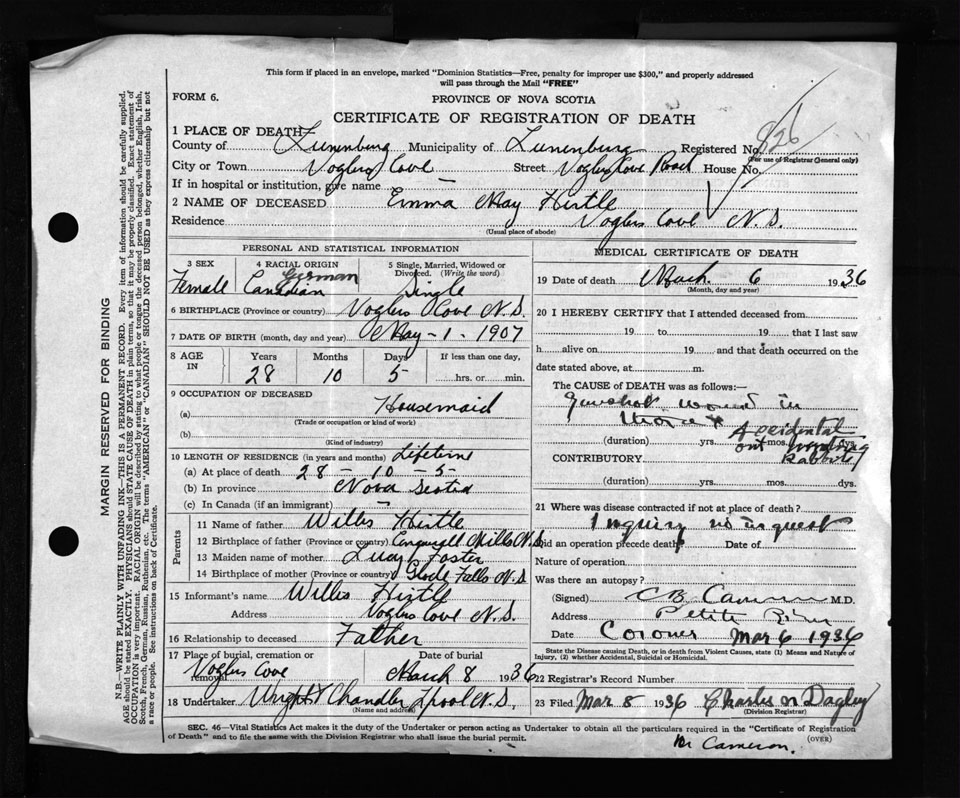 This form if placed in an envelope, marked "Dominion Statistics—Free, penalty for improper use $300," and properly addressed
will pass through the Mail "FREE"
FORM 6.
PROVINCE OF NOVA SCOTIA
CERTIFICATE OF REGISTRATION OF DEATH
1 PLACE OF DEATH—
County of Lunenburg Municipality of Lunenburg Registered No. 826
(For use of Registrar General only)
City or Town Voglers Cove Street Voglers Cove Road House No.
If in hospital or institution, give name —
2 NAME OF DECEASED Emma May Hirtle
Residence Voglers Cove N.S.
(Usual place of abode)
PERSONAL AND STATISTICAL INFORMATION
3 SEX 4 RACIAL ORIGIN 5 Single, Married, Widowed or Divorced. (Write the word)
Female German Canadian Single
6 BIRTHPLACE (Province or country) Voglers Cove N.S.
7 DATE OF BIRTH (month, day and year) May - 1 - 1907
8 AGE IN Years Months Days If less than one day,
28 10 5 hrs. or min.
9 OCCUPATION OF DECEASED
(a) Housemaid
(Trade or occupation or kind of work)
(b)
(Kind of industry)
10 LENGTH OF RESIDENCE (in years and months) Lifetime
(a) At place of death 28 - 10 - 5-
(b) In province Nova Scotia
(c) In Canada (if an immigrant) —
Parents
11 Name of father Willis Hirtle
12 Birthplace of father (Province or country) Mills N.S.
13 Maiden name of mother Lucy Foster
14 Birthplace of mother (Province or country) Falls N.S.
15 Informant's name Willis Hirtle
Address Voglers Cove N.S.
16 Relationship to deceased Father
17 Place of burial, cremation or removal Date of burial
Voglers Cove March 8 1936
18 Undertaker Wright Chandler Lpool N.S.
(Name and address)
MEDICAL CERTIFICATE OF DEATH
19 Date of death March 6 1936
(Month, day and year)
20 I HEREBY CERTIFY that I attended deceased from
19 to 19 that I last saw
h alive on 19 and that death occurred on the
date stated above, at m.
The CAUSE OF DEATH was as follows:—
Gunshot wound in
(duration) yrs. mos. dys.
Accidental
out hunting
Rabbits
CONTRIBUTORY
(duration) yrs. mos. dys.
21 Where was disease contracted if not at place of death?
Inquiry no inquest
Did an operation precede death? Date of
Nature of operation
Was there an autopsy?
(Signed) CB Cameron M.D.
Address Petite
Date Coroner Mar 6 1936
State the Disease causing Death, or in death from Violent Causes, state (1) Means and Nature of
Injury, (2) whether Accidental, Suicidal or Homicidal.
22 Registrar's Record Number
23 Filed Mar 8 1936 Charles N Dagley
(Division Registrar)
SEC. 46—Vital Statistics Act makes it the duty of the Undertaker or person acting as Undertaker to obtain all the particulars required in the "Certificate of Registration
of Death" and to file the same with the Division Registrar who shall issue the burial permit.
(OVER)
Dr Cameron.
MARGIN RESERVED FOR BINDING
N.B.—WRITE PLAINLY WITH UNFADING INK—THIS IS A PERMANENT RECORD. Every item of information should be carefully supplied.
AGE should be stated EXACTLY. PHYSICIANS should STATE CAUSE OF DEATH in plain terms, so that it may be properly classified. Exact statement of
OCCUPATION is very important. RACIAL ORIGIN will be described by stating to what people or tongue the deceased person belonged, whether English, Irish,
Scotch, French, German, Russian, Ruthenian, etc. The terms "AMERICAN" or "CANADIAN" SHOULD NOT BE USED as they express citizenship but not
a race or people. See instructions on back of Certificate.